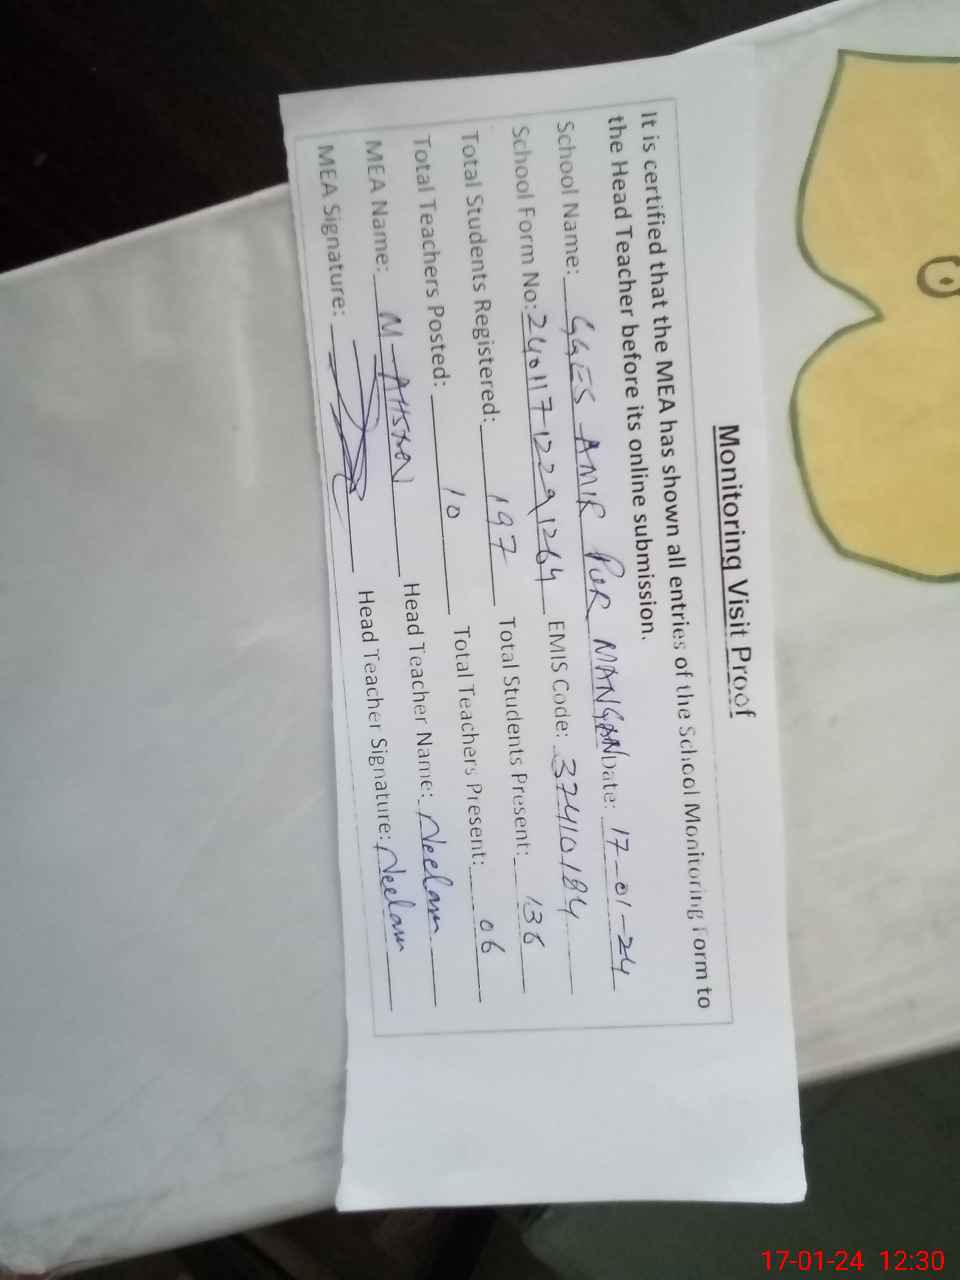 Monitoring Visit Proof
It is certified that the MEA has shown all entries of the School Monitoring Form to
the Head Teacher before its online submission.
School Name: GGES AMIR PUR MANGAN Date: 17-01-24
School Form No: 24011712291264 EMIS Code: 37410184
Total Students Registered: 197 Total Students Present: 136
Total Teachers Posted: 10 Total Teachers Present: 06
MEA Name: M-AHSAN Head Teacher Name: Neelam
MEA Signature: Head Teacher Signature: Neelam
17-01-24 12:30